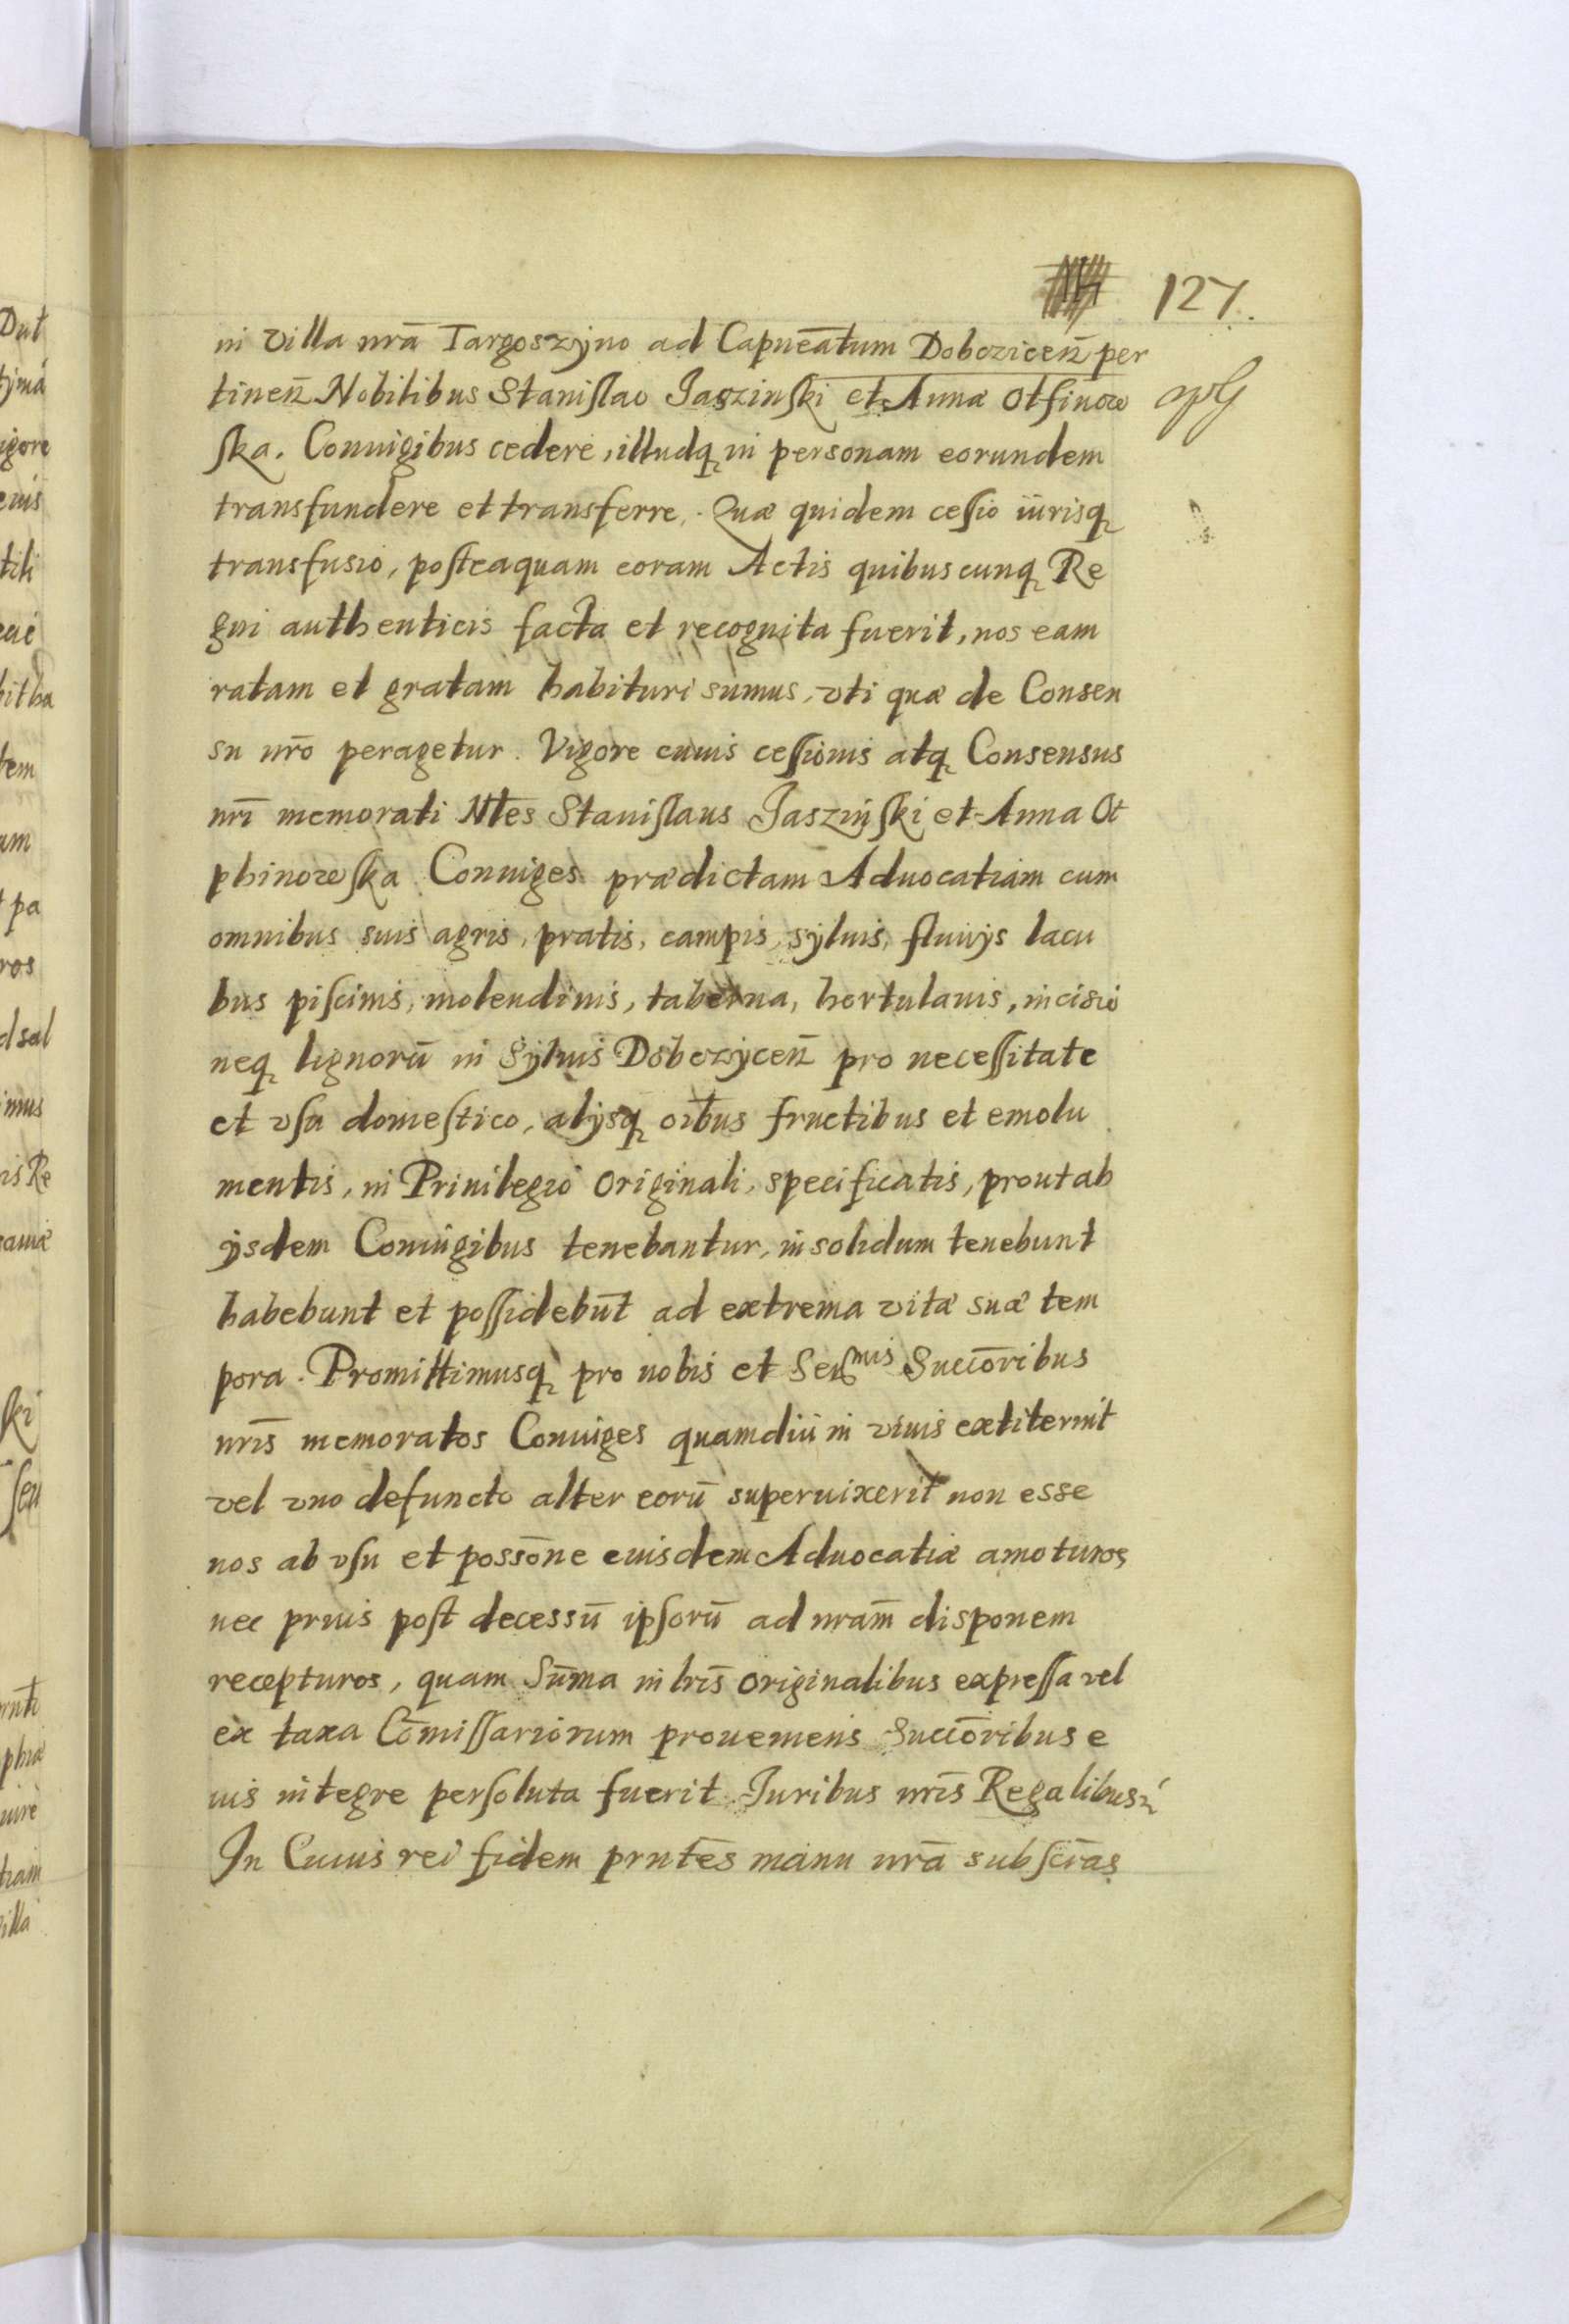 127.
in villa nrā Targoszyno ad Capneātum Dobczicen̄ per
tinen̄ Nobilibus Stanislao Jaszinski et Annæ Otfinow
ska. Coniugibus cedere, illudq in personam eorundem
transfundere et transferre. Quæ quidem cessio iurisq
transfusio, posteaquam coram Actis quibuscunq Re
gni authenticis facta et recognita fuerit, nos eam
ratam et gratam habituri sumus, vti quæ de Consen
su nrō peragetur. Vigore cuius cessionis atq Consensus
nrī memorati Nłes Stanislaus Jaszinski et Anna Ot
phinowska Coniuges prædictam Aduocatiam cum
omnibus suis agris, pratis, campis, syluis, fluuijs lacu
bus piscinis, molendinis, taberna, hortulanis, incisio
neq lignorū in Syluis Dobczycen̄ pro necessitate
et vsu domestico, alijsq oībus fructibus et emolu
mentis, in Priuilegio Originali, specificatis, prout ab
ijsdem Coniugibus tenebantur, in solidum tenebunt
habebunt et possidebūt ad extrema vitæ suæ tem
pora. Promittimusq pro nobis et Sermis Succōribus
nrīs memoratos Coniuges quamdiu in viuis extiterint
vel vno defuncto alter eorū superuixerit non esse
nos ab vsu et possōne eiusdem Aduocatiæ amoturos
nec prius post decessū ipsorū ad nram̄ disponem
recepturos, quam Sūma in lrīs Originalibus expressa vel
ex taxa Cōmissariorum proueniens Succōribus e
ius integre persoluta fuerit. Juribus nrīs Regalibus
In Cuius rei fidem prntēs manu nrā subscrās